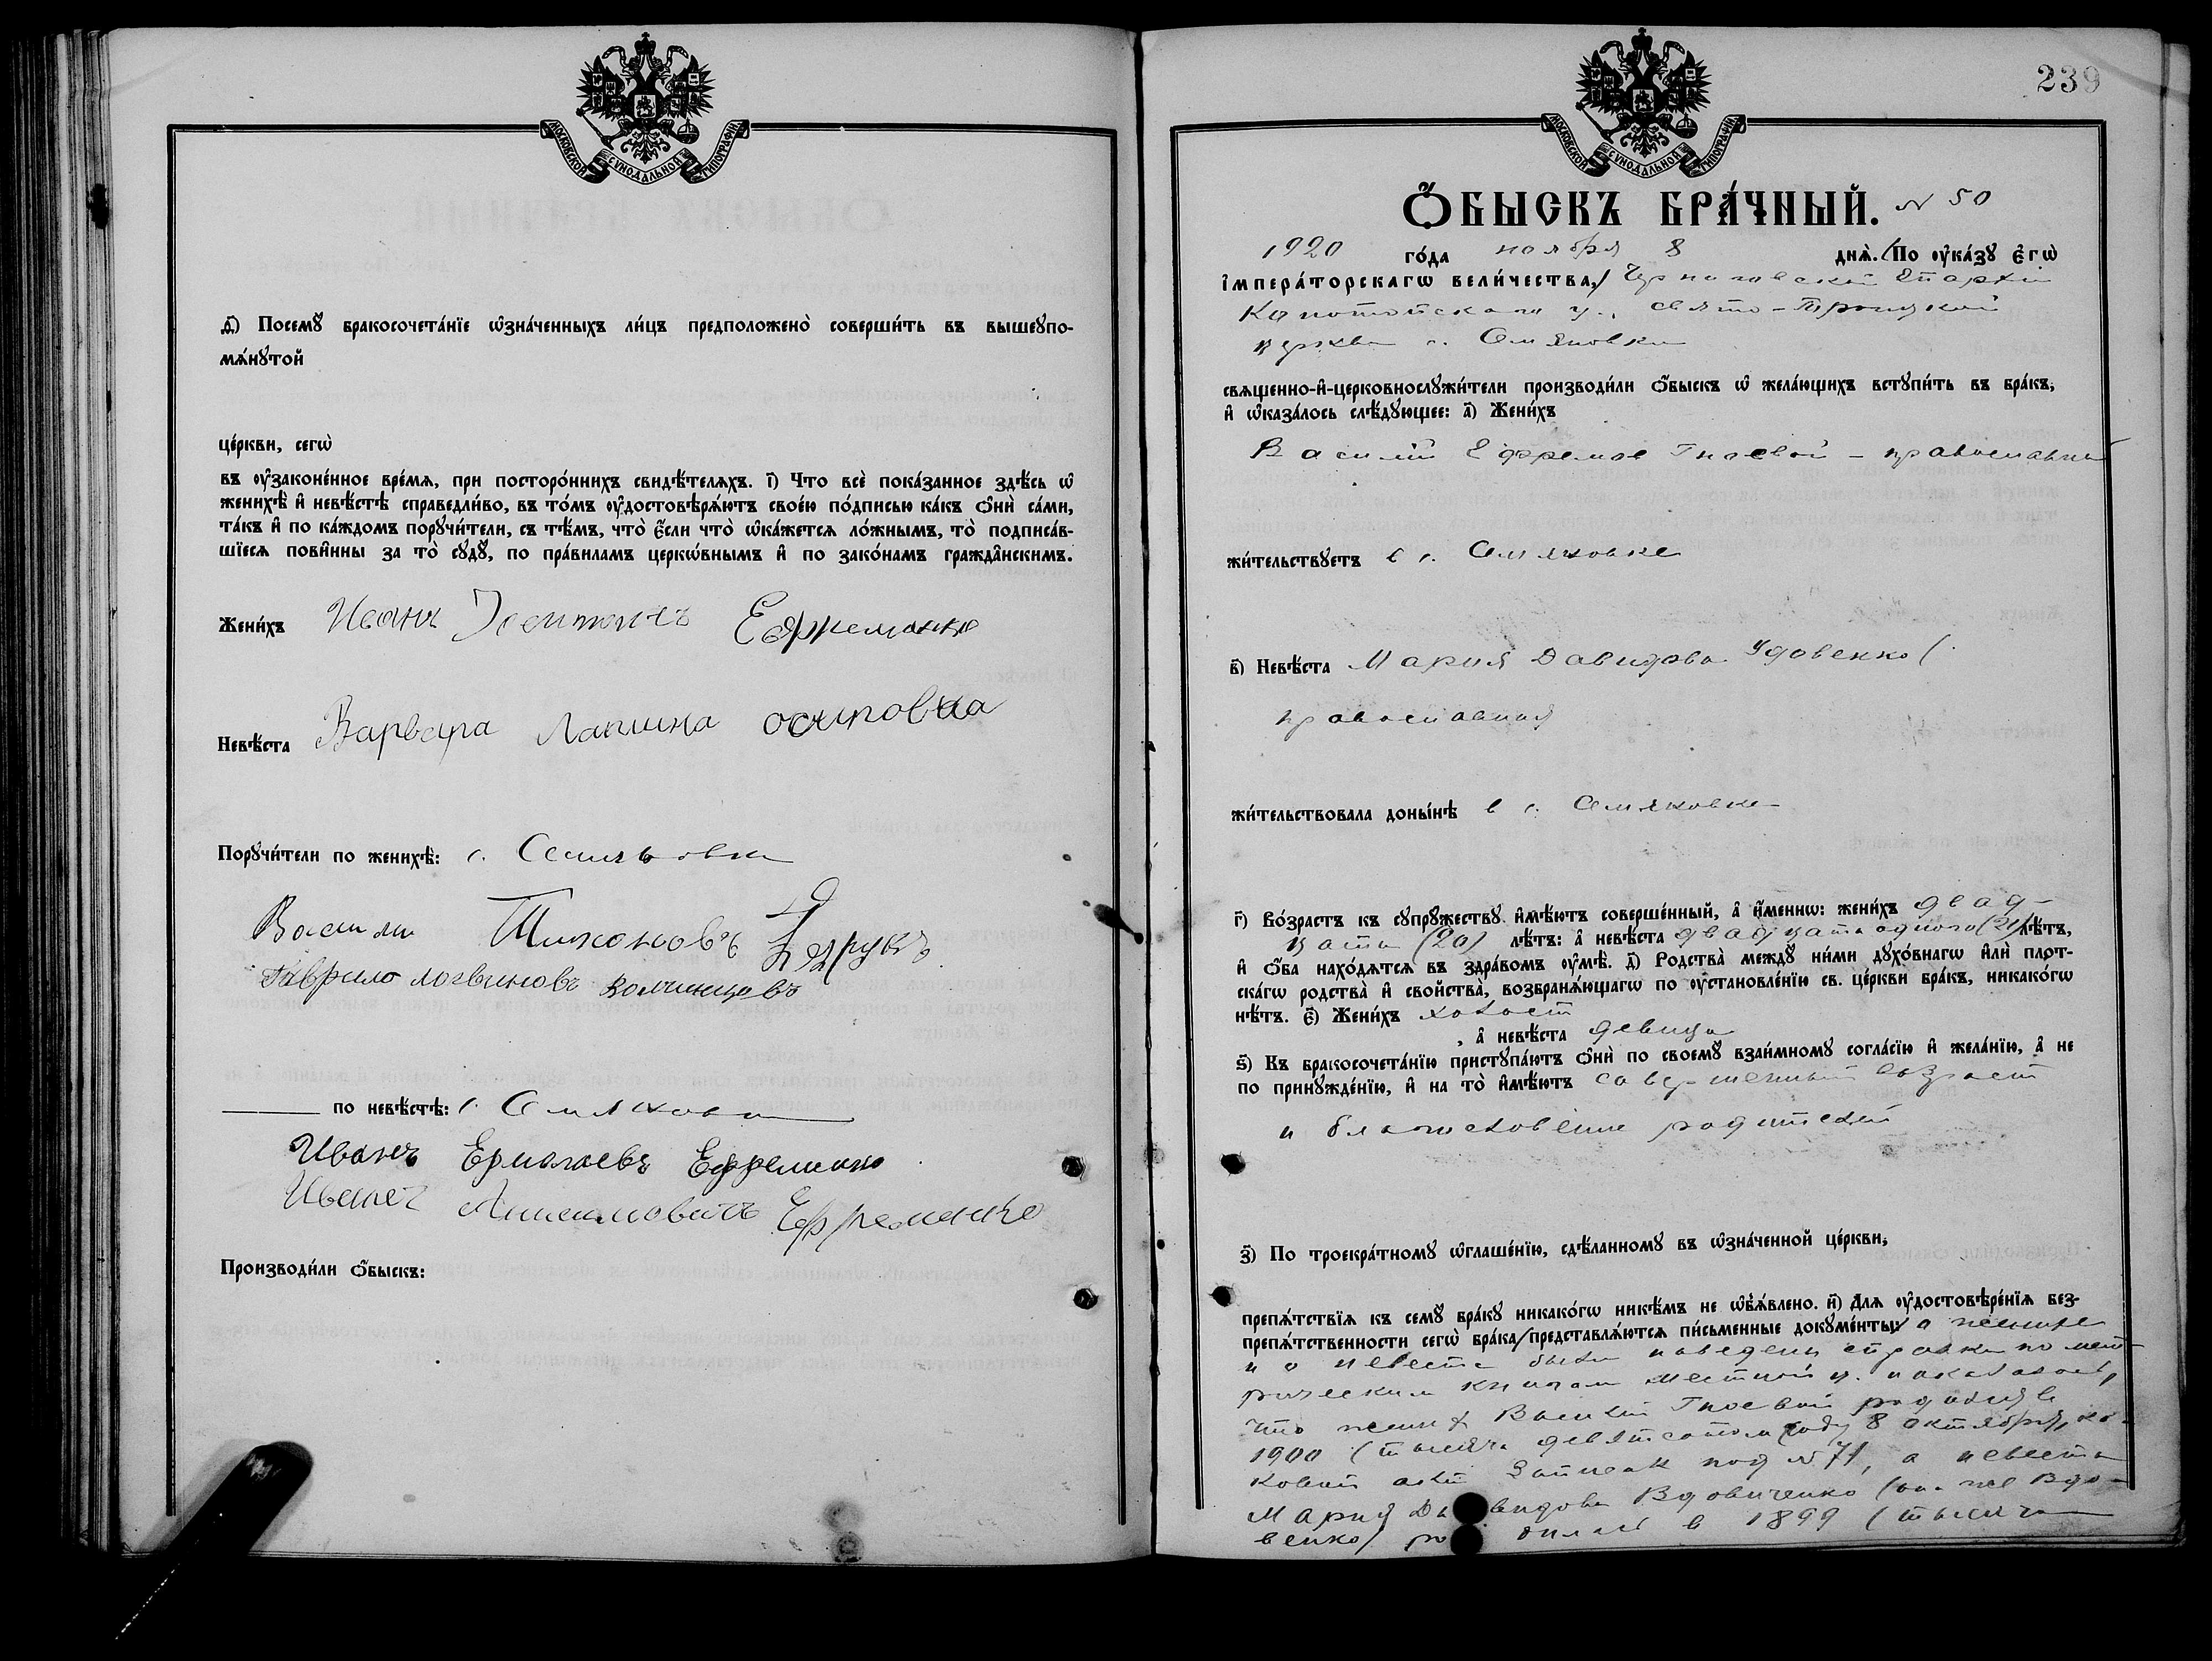 МОСКОВСКОЙ СѴНОДАЛЬНОЙ ТИПОГРАФІИ
ѳ҃) Посемꙋ̀ бракосочета́нїе ѡ҆зна́ченныхъ ли́цъ предположено̀ соверши́ть въ вышеꙋпо-
мѧ́нꙋтой
це́ркви, сегѡ̀
въ ᲂу҆зако́ненное вре́мѧ, при посторо́ннихъ свидѣ́телѧхъ. і҃) Что̀ всѐ пока́занное здѣ́сь ѡ҆
женихѣ̀ и҆ невѣ́стѣ справедли́во, въ то́мъ ᲂу҆достовѣрѧ́ютъ свое́ю по́дписью ка́къ ѻ҆нѝ са́ми,
та́къ и҆ по ка́ждомъ порꙋчи́тели, съ тѣ́мъ, что̀ є҆́сли что̀ ѡ҆ка́жетсѧ ло́жнымъ, то̀ подписа́в-
шїесѧ пови́нны за то̀ сꙋдꙋ̀, по пра́виламъ церкѡ́внымъ и҆ по зако́намъ гражда́нскимъ.
Жени́хъ Иванъ Ефременко
Невѣ́ста Варвара Лапшина осиповна
Порꙋчи́тели по женихѣ̀: с.
Васили Тихоновъ
Гаврило логвиновъ
по невѣ́стѣ: с.
Иванъ Ермолаевъ Ефременко
Иванъ Ефременко
Производи́ли ѻ҆́быскъ:
239
МОСКОВСКОЙ СѴНОДАЛЬНОЙ ТИПОГРАФІИ
Ѻ҆́БЫСКЪ БРА́ЧНЫЙ. N 50
1920 го́да ноября 8 днѧ̀. (По ᲂу҆ка́зꙋ є҆гѡ̀
і҆мпера́торскагѡ вели́чества,) Черниговской Епархии
Конотопского у., Свято-Троицкой
церкви с. Семяновки
сващенно-и҆-церковнослꙋжи́тели производи́ли ѻ҆́быскъ ѡ҆ жела́ющихъ встꙋпи́ть въ бра́къ,
и҆ ѡ҆каза́лось слѣ́дꙋющее: а҃) Жени́хъ
Василий Ефремов Гноевой - православный
жи́тельствꙋетъ в с. Семяновке
в҃) Невѣ́ста Мария Давидова Удовенко (
православная
жи́тельствовала доны́нѣ в с. Семяновке
г҃) Во́зрастъ къ сꙋпрꙋ́жествꙋ и҆мѣ́ютъ соверше́нный, а҆ и҆́меннѡ: жени́хъ двад-
цати (20) лѣ́тъ: а҆ невѣ́ста двадцати одного (21) лѣ́тъ,
и҆ ѻ҆́ба нахо́дѧтсѧ въ здра́вомъ ᲂу҆мѣ̀. д҃) Родства̀ междꙋ̀ ни́ми дꙋхо́внагѡ и҆лѝ плот-
ска́гѡ родства̀ и҆ сво́йства̀, возбранѧ́ющагѡ по ᲂу҆становле́нїю св. це́ркви бра́къ, никако́гѡ
нѣ́тъ. є҃) Жени́хъ холост
, а҆ невѣ́ста девица
ѕ҃) Къ бракосочета́нїю пристꙋпа́ютъ ѻ҆нѝ по своемꙋ̀ взаи́мномꙋ согла́сїю и҆ жела́нїю, а҆ не
по принꙋжде́нїю, и҆ на то̀ и҆мѣ́ютъ совершенный возраст
и благословение родителей
з҃) По троекра́тномꙋ ѡ҆глаше́нїю, сдѣ́ланномꙋ въ ѡ҆зна́ченной це́ркви,
препѧ́тствїѧ къ семꙋ̀ бра́кꙋ никако́гѡ никѣ́мъ не ѡ҆б̾ѧ́влено. и҃) Для ᲂу҆достовѣре́нїѧ без-
препѧ́тственности сегѡ̀ бра́ка (представлѧ́ютсѧ пи́сьменные докꙋме́нты:) о женихе
и о невесте были наведены справки по мет-
рическим книгам местной ц. и оказалось,
что жених Василий Гноевой родился в
1900 (тысяча девятсотом) году 8 октября, ка-
ковой акт записан под N 71, а невеста
Мария Давидова Вдовиченко (она же Вдо-
венко) родилась в 1899 (тысяча